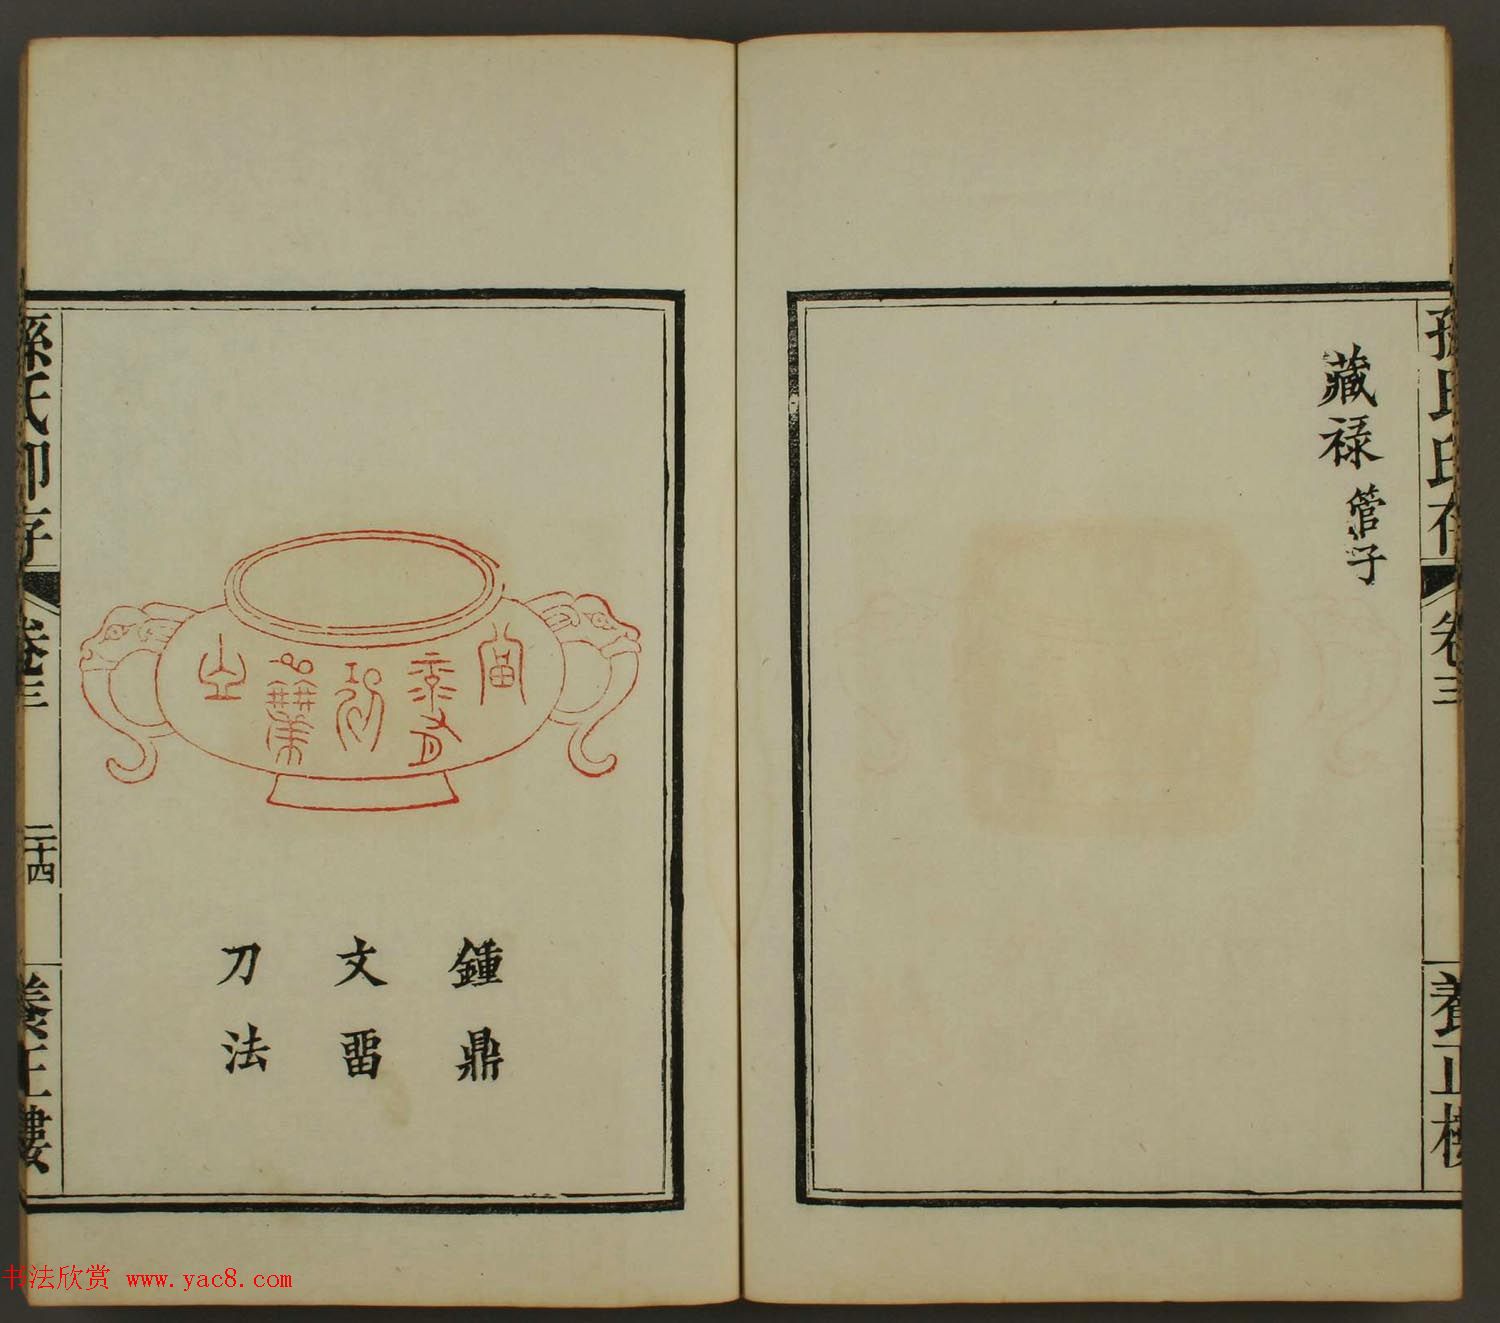 孫氏印存 卷三 養正樓
藏禄 管子
鍾鼎
文畱
刀法
孫氏印存 卷三 二十四 養正樓
书法欣赏 www.yac8.com